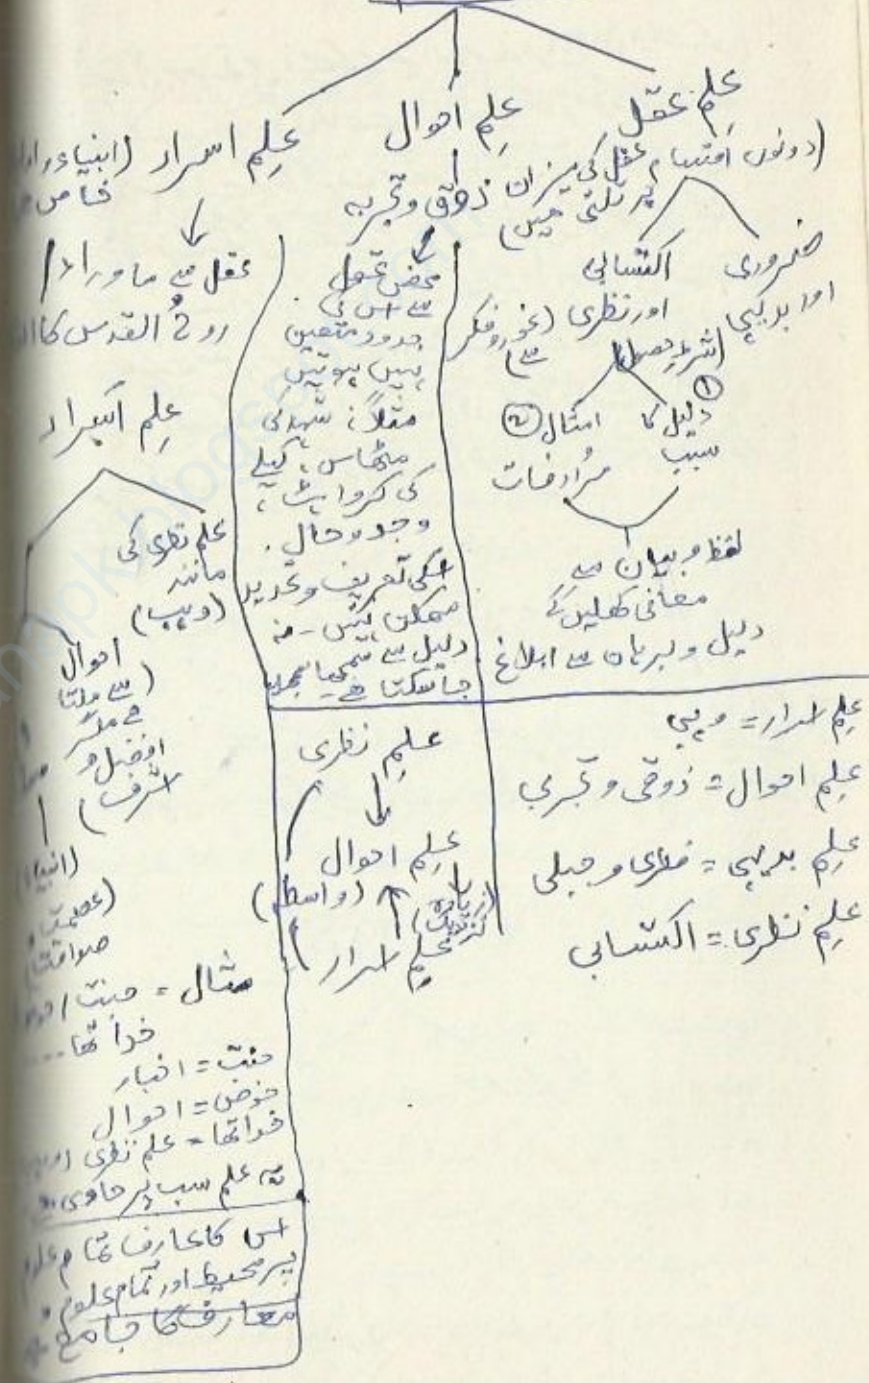 علمِ عقل
(دونوں اقسام عقل کی میزان
پر تلتی ہیں)
ضروری
اور بدیہی
اکتسابی
اور نظری (غور و فکر
سے)
(شرطِ حصول)
① دلیل کا
سبب
امثال ②
مُرادفات
لفظ و بیان سے
معانی کھلیں گے
دلیل و برہان سے ابلاغ
علمِ احوال
ذوق و تجربہ
محض عقل
سے اس کی
حدود متعین
نہیں ہوتیں
مثلاً: شہد کی
مٹھاس،
کی کرواہٹ،
وجد و حال.
اسکی تعریف و تحدید
ممکن نہیں - نہ
دلیل سے سمجھا سمجھایا
جا سکتا ہے
علمِ اسرار (انبیاء و
خاص
عقل سے ماوراء
روحُ القدس کا
علمِ اسرار
علم نظری کی
مانند
(وہب)
احوال
(سے ملتا
ہے مگر
افضل و
اشرف)
(انبیاء
(عصمت و
صداقت
مثال = جنت
خدا تھا....
جنت = اخبار
حوض = احوال
خدا تھا = علم نظری
یہ علم سب پر حاوی ہے
اس کا عارف تمام علوم
پر محیط اور تمام علوم و
معارف کا جامع ہے
علمِ نظری
علمِ احوال
(واسطہ)
(زیادہ
نزدیک)
علمِ اسرار
علمِ اسرار = وہبی
علمِ احوال = ذوقی و تجربی
علمِ بدیہی = فطری و جبلی
علمِ نظری = اکتسابی